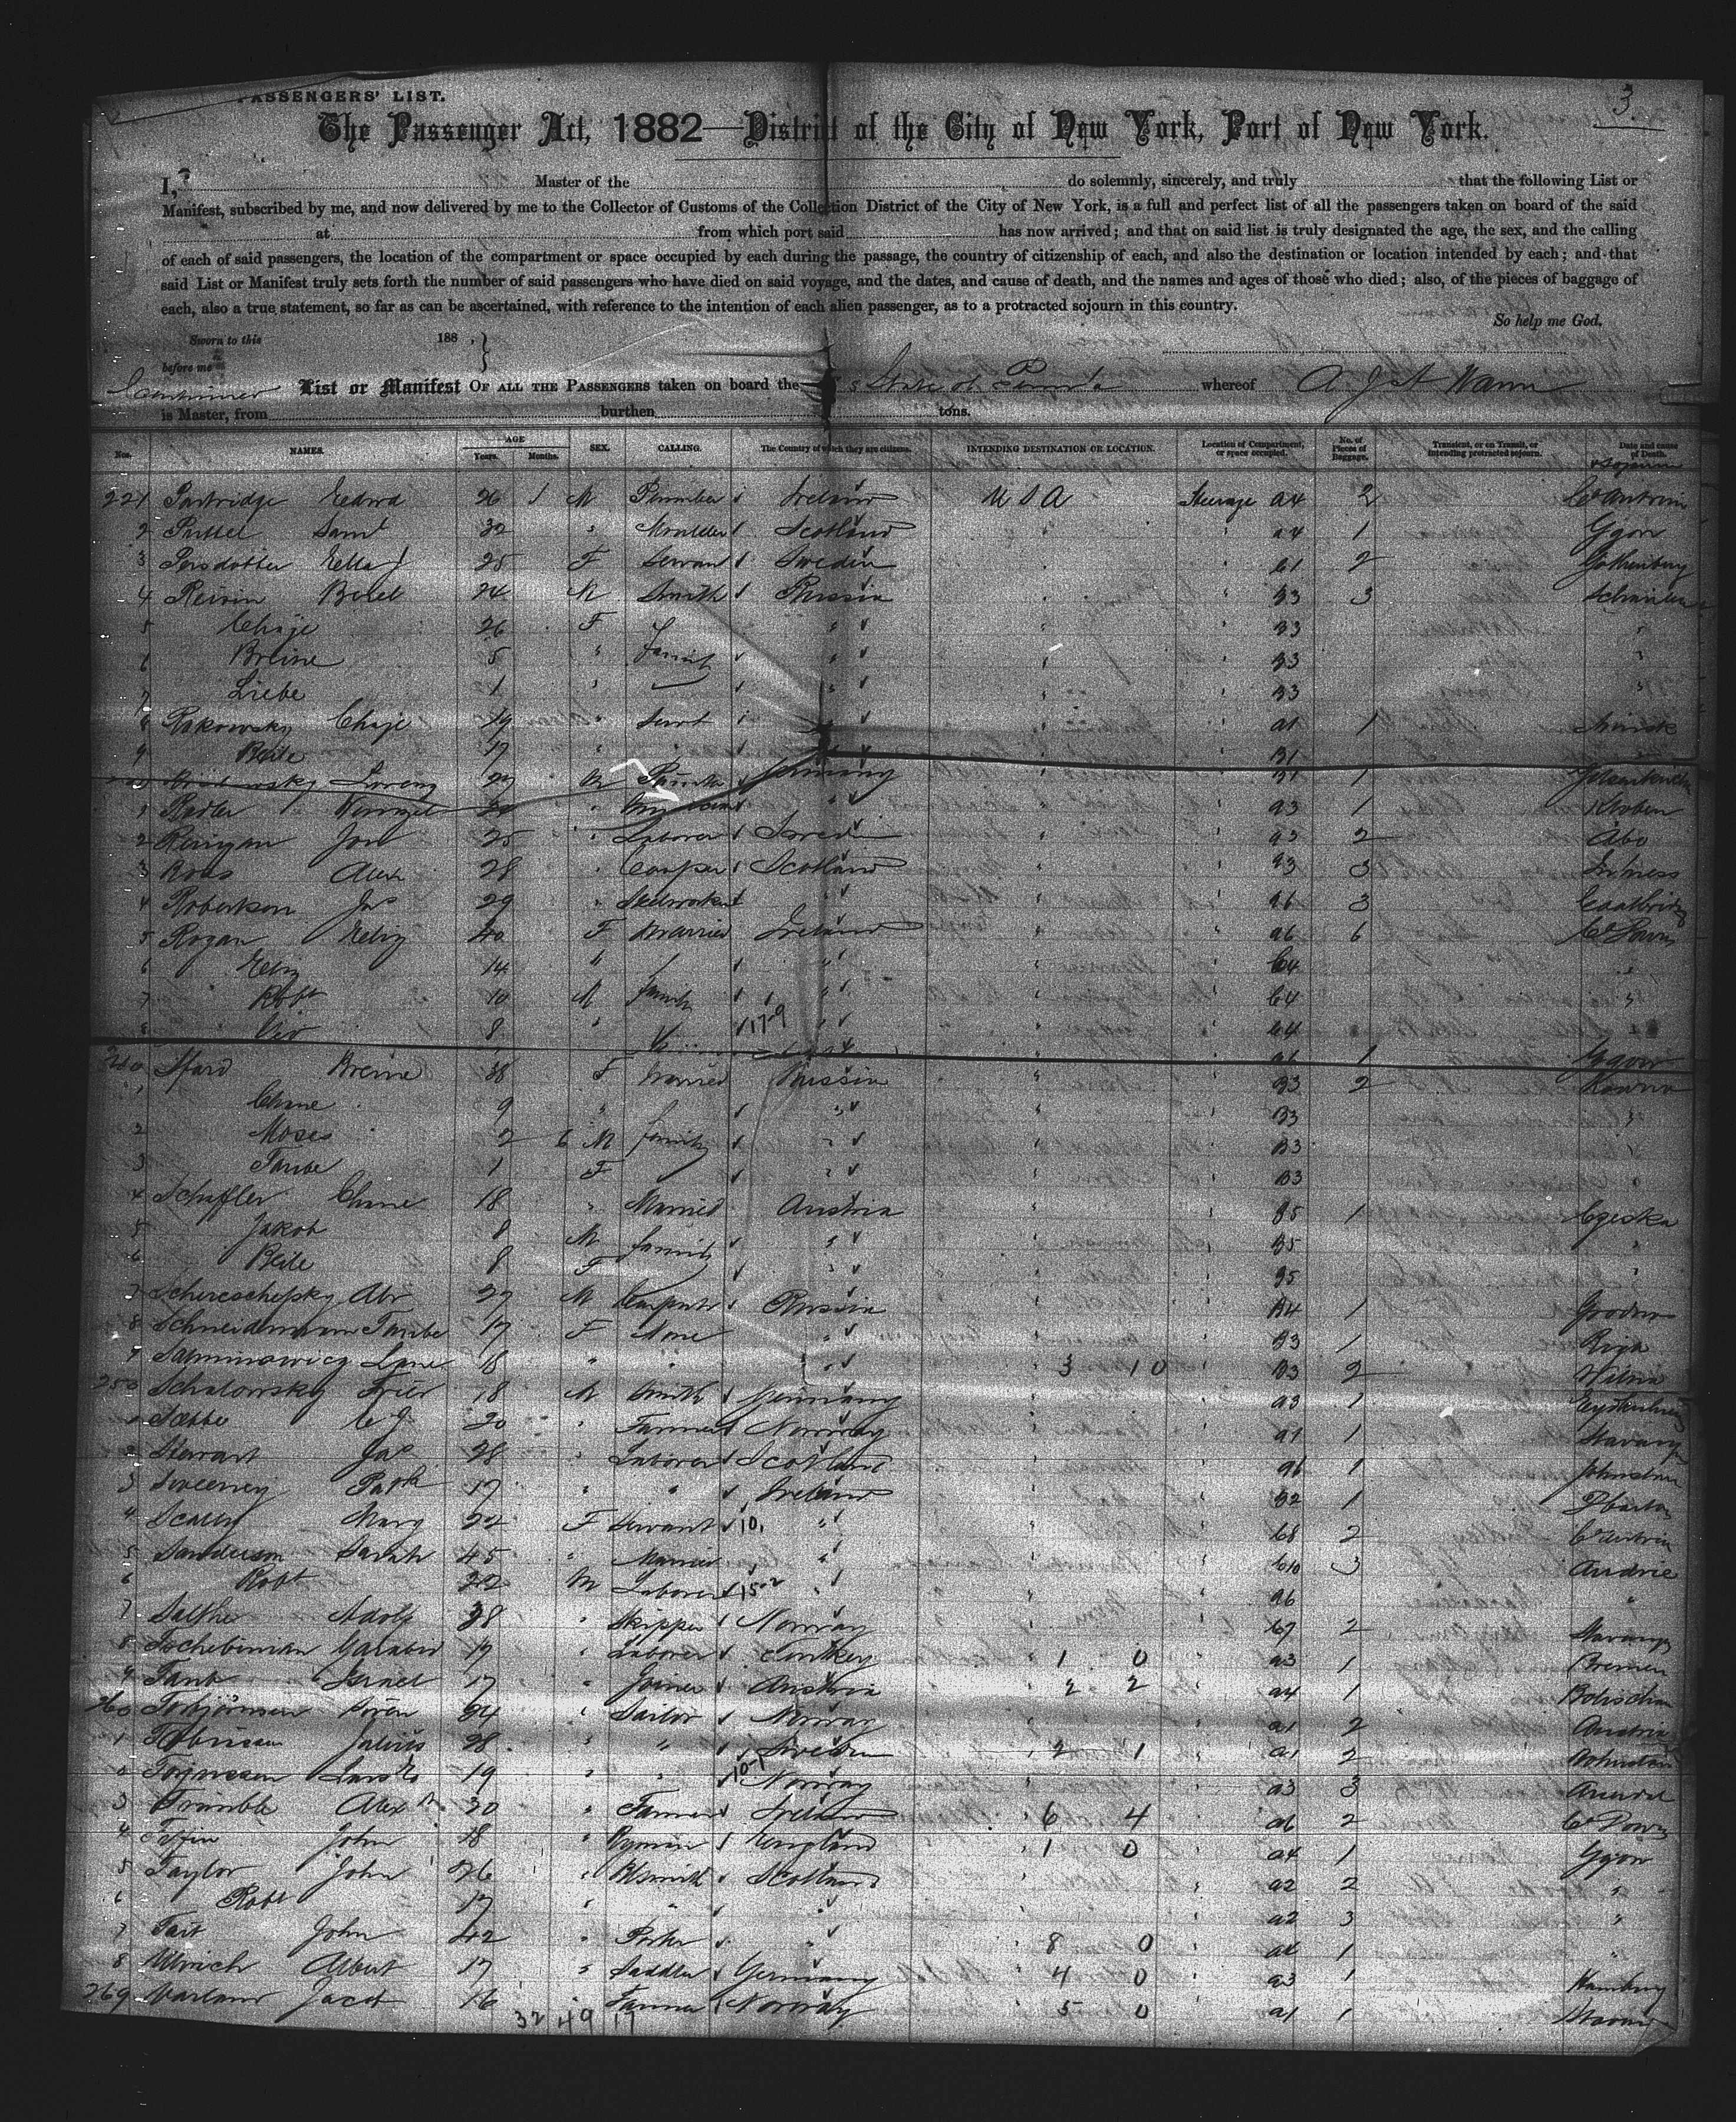 PASSENGERS' LIST.
3.
The Passenger Act, 1882—District of the City of New York, Port of New York.
I, Master of the do solemnly, sincerely, and truly that the following List or
Manifest, subscribed by me, and now delivered by me to the Collector of Customs of the Collection District of the City of New York, is a full and perfect list of all the passengers taken on board of the said
at from which port said has now arrived; and that on said list is truly designated the age, the sex, and the calling
of each of said passengers, the location of the compartment or space occupied by each during the passage, the country of citizenship of each, and also the destination or location intended by each; and that
said List or Manifest truly sets forth the number of said passengers who have died on said voyage, and the dates, and cause of death, and the names and ages of those who died; also, of the pieces of baggage of
each, also a true statement, so far as can be ascertained, with reference to the intention of each alien passenger, as to a protracted sojourn in this country.
So help me God.
Sworn to this 188 .
before me
List or Manifest OF ALL THE PASSENGERS taken on board the State of whereof A J A Mann
is Master, from burthen tons.
Nos. NAMES. AGE Years. Months. SEX. CALLING. The Country of which they are citizens. INTENDING DESTINATION OR LOCATION. Location of Compartment, or space occupied. No. of Pieces of Baggage. Transient, or on Transit, or intending protracted sojourn. Date and cause of Death.
221 Partridge Edwd 26 M Plumber Ireland U S A Steerage a4 2 Co Antrim
2 Saml 32 " Moulder Scotland a4 1 Ggow
3 Persdotter 25 F Servant Sweden b1 2 Gothenburg
4 24 M Smith Russia B3 3
5 Chaje 26 F " B3 "
6 Breine 5 " Family " B3 "
7 Liebe 1 " " B3 "
8 Rakowsky Chaje 19 " Servt " 1 Minsk
9 Beile 17 " " " B1
27 M Germany 1
1 Radler " a3 1
2 Jon 25 " Laborer Swed a3 2 Abo
3 Ross Alex 28 " Cooper Scotland a3 3
4 Robertson Jas 29 " Steelworker " a6 3 Coatbridge
5 Rogan Eliz 40 F Married Ireland a6 6 Co Down
6 Eliz 14 " " b4 "
7 Robt 10 M Family " b4 "
8 Geo 8 " 17-9 " b4 "
1 Ggow
240 Breine 38 F Married Russia B3 2 Kowno
1 Chane 9 " " B3 "
2 Moses 2 6 M Family " B3 "
3 Taube 1 F " B3 "
4 Schaffler Chane 18 " Married Austria B5 1
5 Jakob 8 M Family " B5 "
6 Beile 8 F " B5 "
7 Schereschefsky Abr 27 M Carpentr Russia A4 1 Grodno
8 Schneidmann Taube 17 F None " B3 1 Riga
9 18 " " " 3 10 B3 2 Wilna
250 Schalowsky Fried 18 M Smith Germany a3 1
C J 20 " Farmer Norway a1 1 Stavanger
2 Stewart Jas 28 " Laborer Scotland a6 1 Johnstone
3 Sweeney Patk 17 " " Ireland B2 1
4 Scally Mary 22 F Servant 10. " b8 2 Co Antrim
5 Sanderson Sarah 45 " Married " b10 3 Airdrie
6 Robt 22 M Laborer 15-2 " a6 "
7 Adolf 38 " Skipper Norway b7 2 Stavanger
8 19 " Laborer Turkey 1 0 a3 1 Bremen
9 Tank Israel 17 " Joiner Austria 2 2 a4 1
260 Sören 24 " Sailor Norway a1 2
1 Julius 28 " " Sweden 2 1 a1 2
2 Lars 19 " " 10-1 Norway a3 3 Arendal
3 Trimble Alexr 30 " Farmer Ireland 6 4 a6 2 Co Down
4 John 18 " England 1 0 a4 1 Ggow
5 Taylor John 26 " Blsmith Scotland a2 2 "
6 Robt 17 " " " a2 3 "
7 Tait John 42 " Porter " 8 0 a4 1 "
8 Ullrich Albert 17 " Saddler Germany 4 0 a3 1 Hamburg
269 Jacob 16 " Farmer Norway 5 0 a1 1
32 49 17